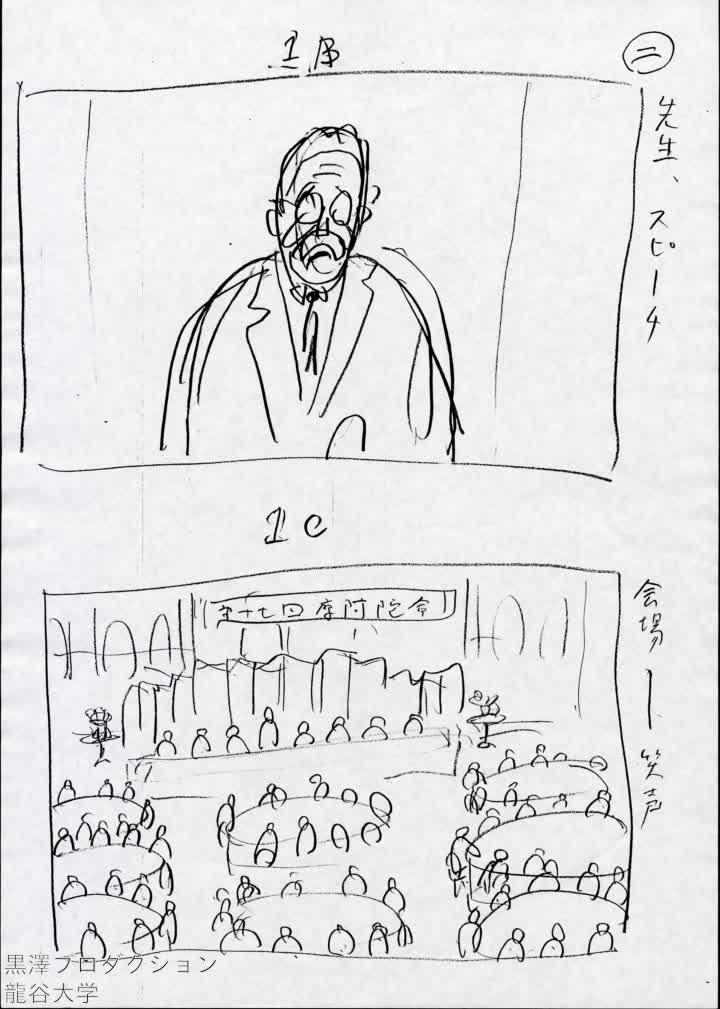 二
1B
先生、スピーチ
1C
会場ー笑声
第十七回摩阿陀会
黒澤プロダクション
龍谷大学